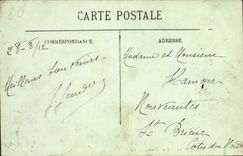 86
CARTE POSTALE
CORRESPONDANCE
ADRESSE
28-8/12
Meilleurs Souvenirs
Madame et Monsieur
Hamon
Nouveautés
St Brieuc
Côtes du Nord